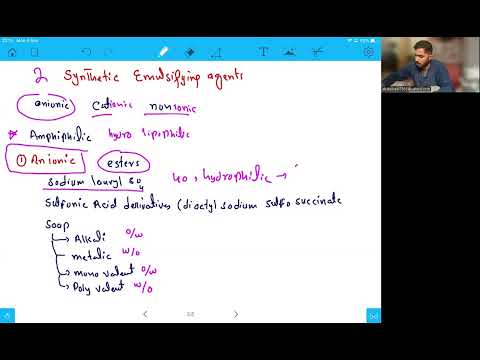 2 Synthetic Emulsifying agents
anionic Cationic nonionic
Amphiphilic hydro lipophilic
① Anionic esters
Sodium lauryl SO4 40, hydrophilic →
Sulfonic Acid derivatives (dioctyl sodium sulfo succinate
Soap
→ Alkali o/w
metalic w/o
→ mono valent o/w
→ Poly valent w/o